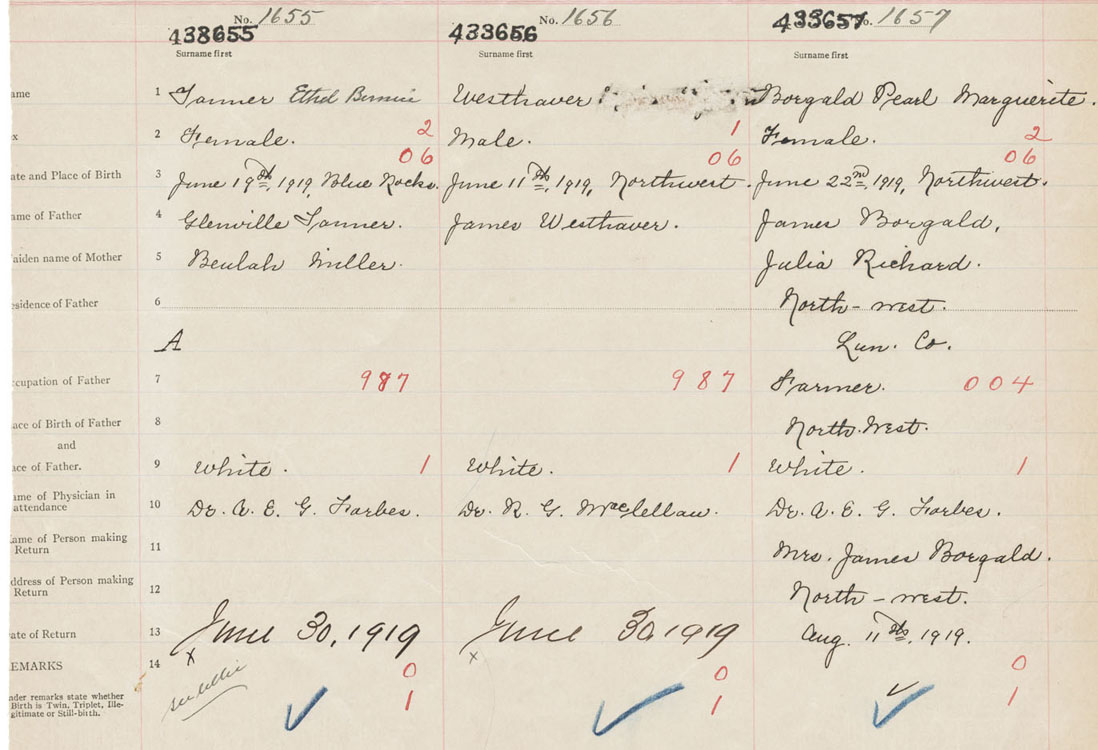 No. 1655 No. 1656 No. 1657
433656 433657
Surname first Surname first Surname first
ame 1 Tanner Ethel Westhaver Borgald Pearl Marguerite.
ex 2 Female. 2 Male. 1 Female. 2
06 06 06
ate and Place of Birth 3 June 19th, 1919, Blue Rocks. June 11th, 1919, Northwest. June 22nd, 1919, Northwest.
ame of Father 4 Glenville Tanner. James Westhaver. James Borgald.
aiden name of Mother 5 Beulah Miller. Julia Richard.
esidence of Father 6 North-west.
A Lun. Co.
ccupation of Father 7 987 987 Farmer. 004
ace of Birth of Father 8 North-West.
and
ace of Father. 9 White. 1 White. 1 White. 1
ame of Physician in
attendance 10 Dr. A. E. G. Forbes. Dr. R. G. MacLellan. Dr. A. E. G. Forbes.
ame of Person making
Return 11 Mrs. James Borgald.
ddress of Person making
Return 12 North-west.
ate of Return 13 June 30, 1919 June 30, 1919 Aug. 11th, 1919.
x x
EMARKS 14 0 0 0
nder remarks state whether
Birth is Twin, Triplet, Ille-
gitimate or Still-birth. 1 1 1